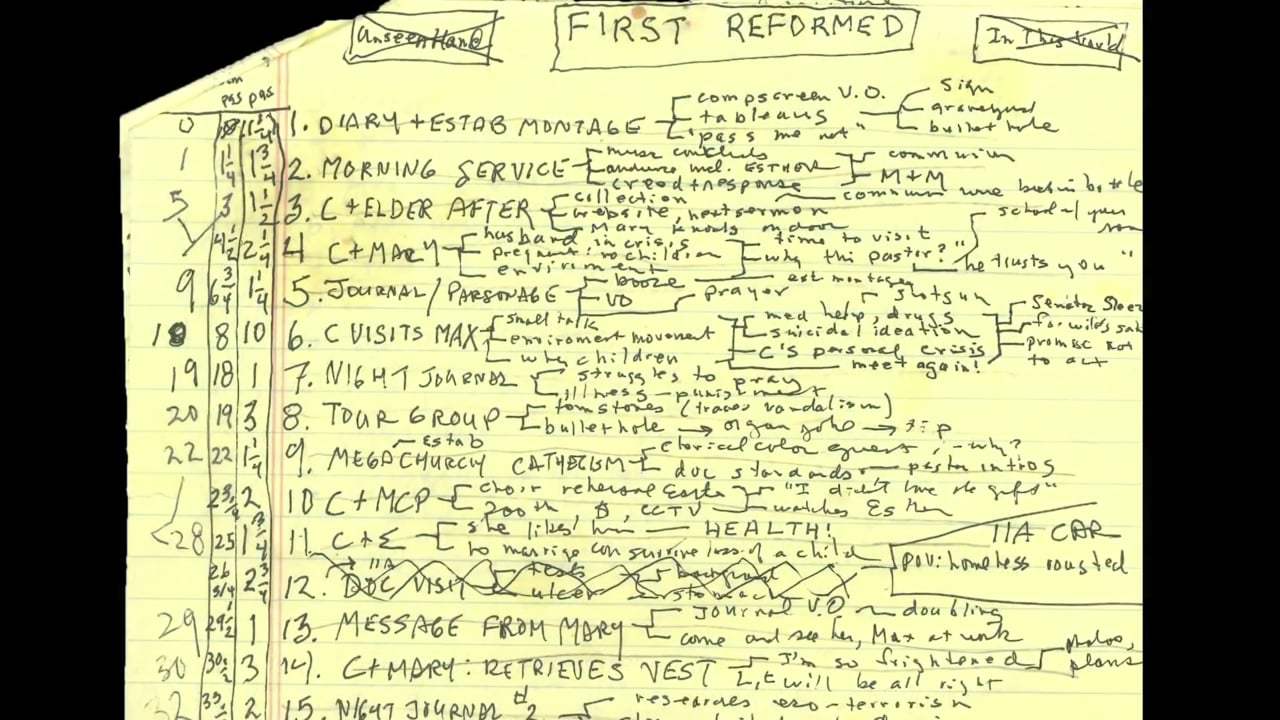 Unseen Hand FIRST REFORMED In This World
pgs pgs
compscreen V.O. sign
0 1 1/4 1. DIARY + ESTAB MONTAGE tableaus graveyard
"pass me not" bullet hole
music controls communion
1 1 1/4 1 3/4 2. MORNING SERVICE incl. ESTHER M+M
creed + response communion wine but in bottle
collection
5 3 1 1/2 3. C + ELDER AFTER website, next sermon
Mary knocks on door school
husband in crisis time to visit
4 1/2 2 1/4 4 C + MARY pregnant: no children why this pastor? "he trusts you"
enviroment est montage
booze prayer
9 6 3/4 1 1/4 5. JOURNAL / PARSONAGE VO
shotgun
small talk med help, drugs Senator
8 10 6. C VISITS MAX enviroment movement suicidal ideation for wilds
why children C's personal crisis promise not
meet again! to act
struggles to pray
19 18 1 7. NIGHT JOURNAL illness - punishment
tomstones (traces vandalism)
20 19 3 8. TOUR GROUP bullethole → organ joke → tip
Estab clerical color - why?
22 22 1 1/4 9. MEGACHURCH CATHECISM doc standards pastor intros
choir rehersal "I didn't have the gifts"
2 10 C + MCP 200th, $, CCTV watches Esther
she likes him HEALTH!
28 25 1 3/4 11. C + E no marrige can survive loss of a child
11A CAR
POV: homeless rousted
→ 11A tests
26 3/4 2 3/4 12. DOC VISIT ulcer stomach
Journal V.O. doubling
29 29 1/2 1 13. MESSAGE FROM MARY come and see her, Max at work
photos,
I'm so frightened plans
30 30 1/2 3 14. C + MARY: RETRIEVES VEST It will be all right
researches eco-terrorism
32 33 1/2 2 15. NIGHT JOURNAL #2